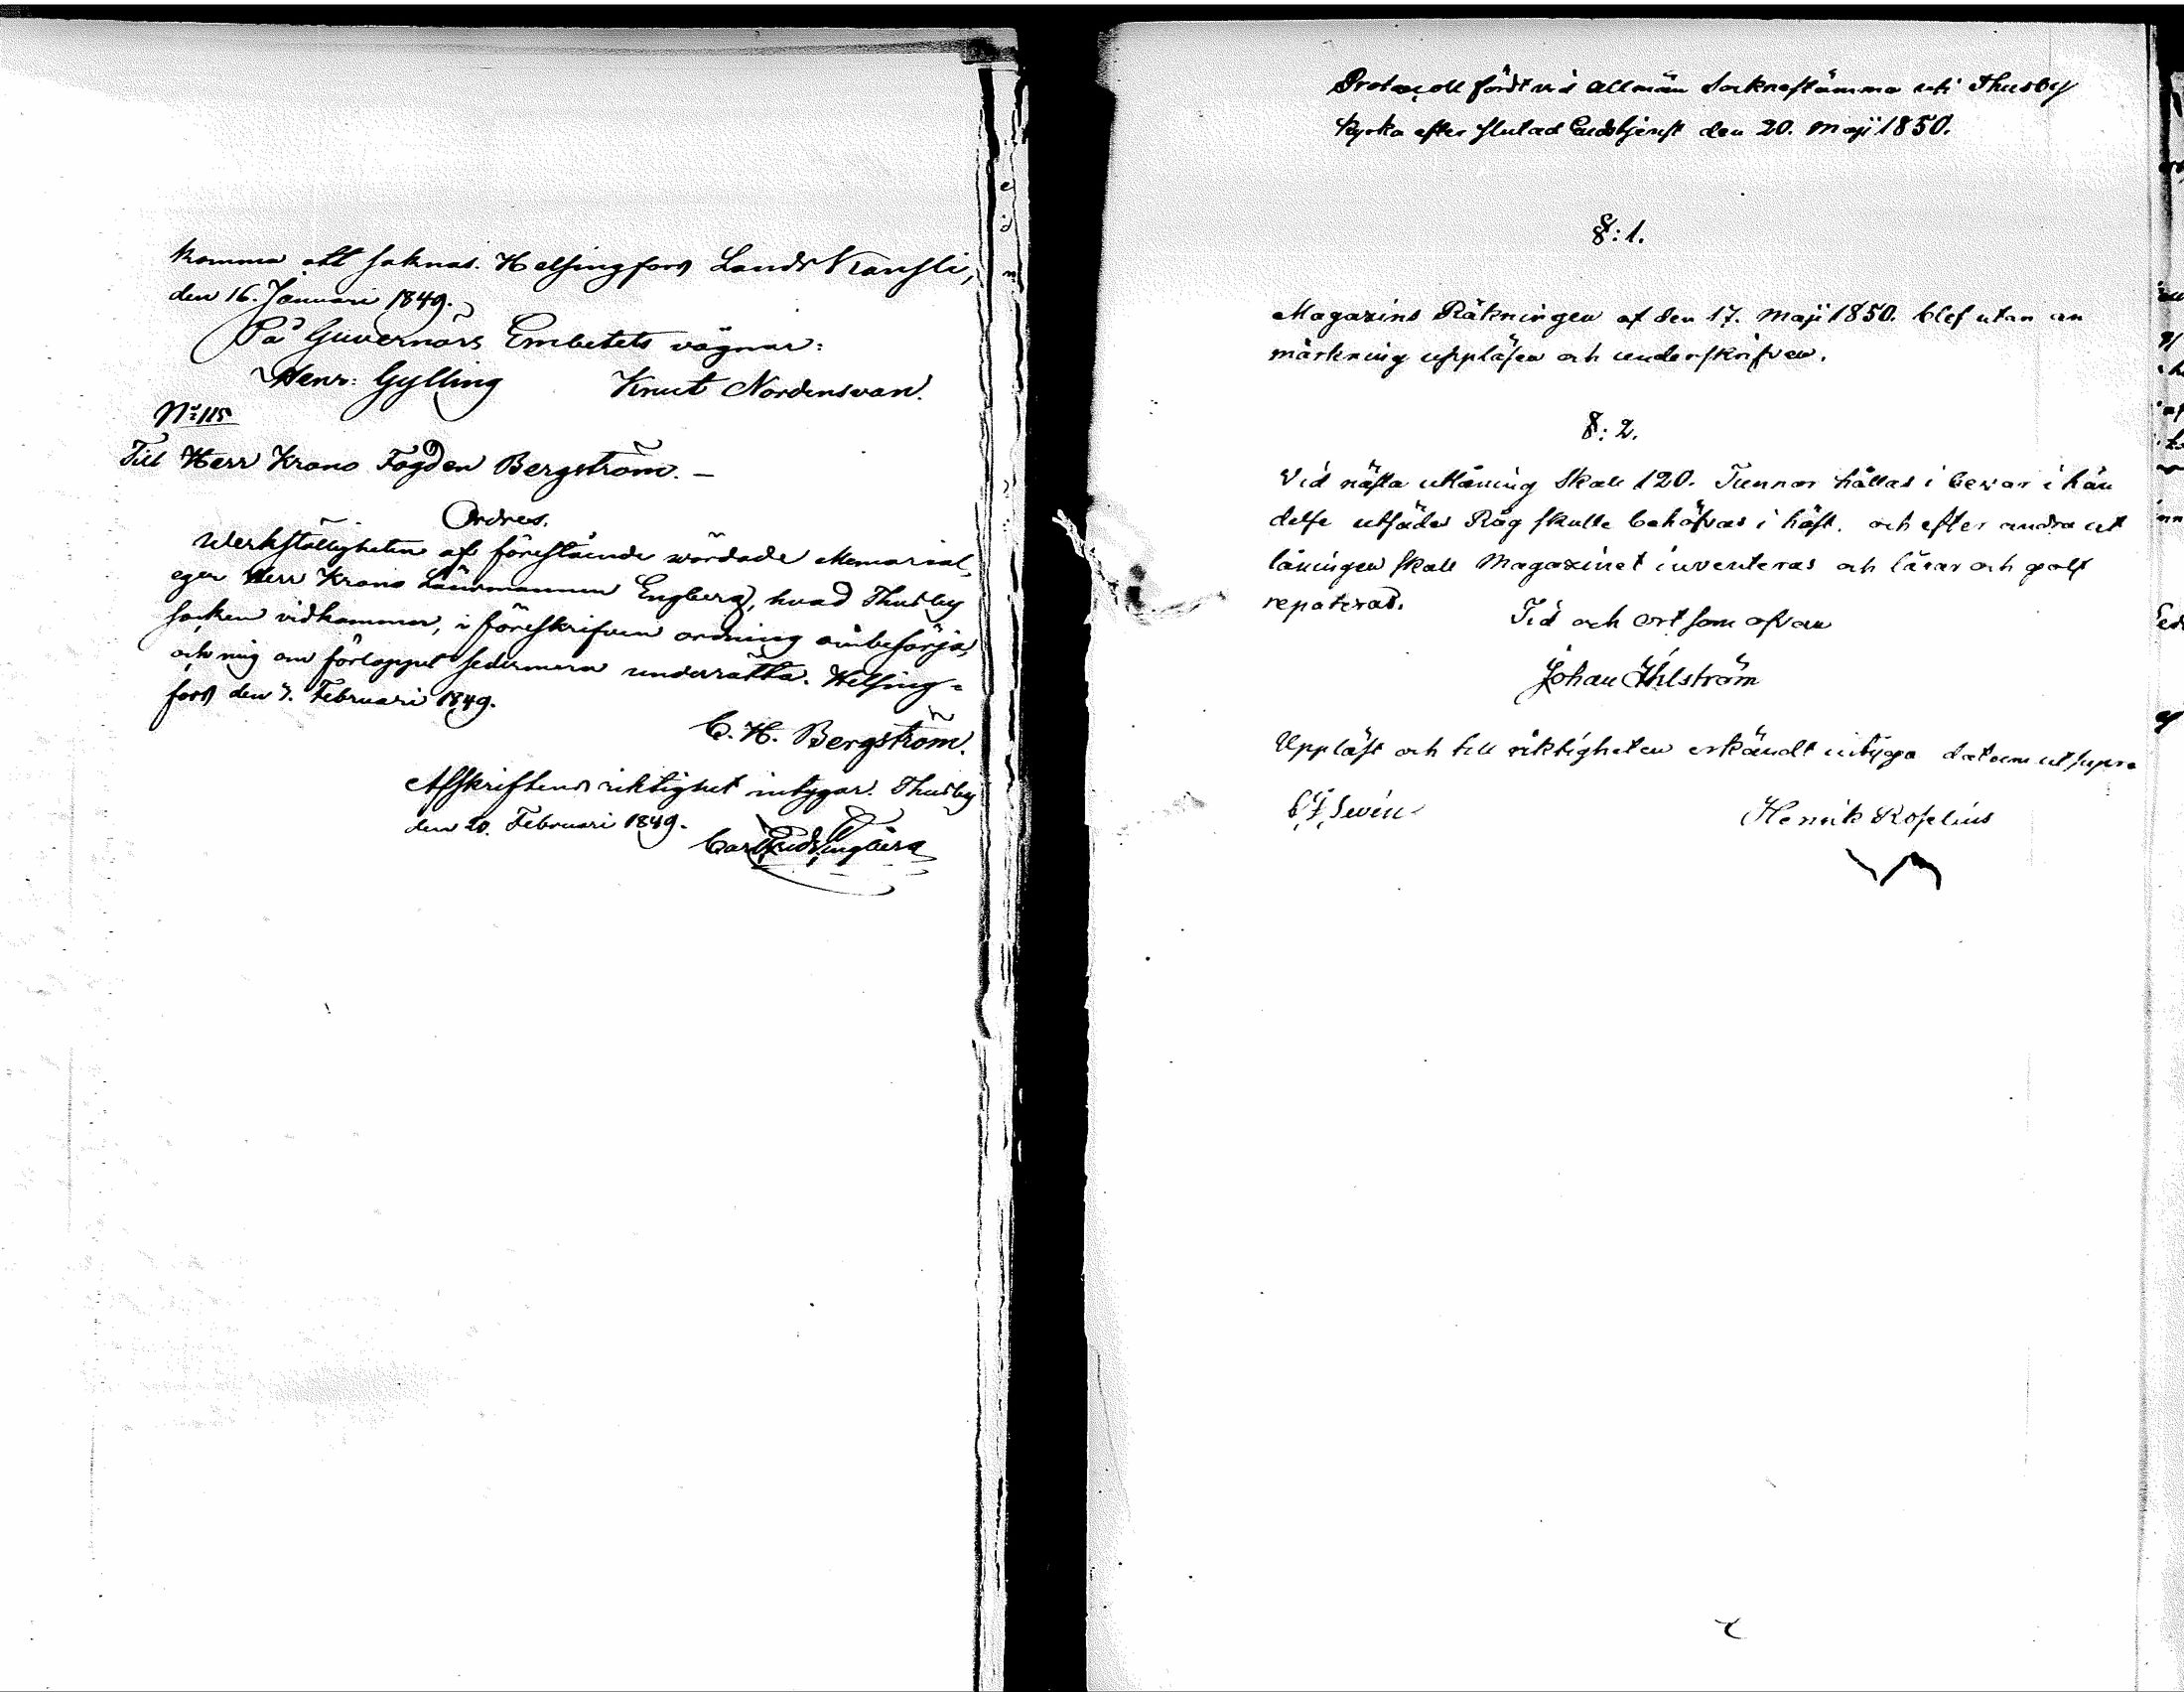 komma att saknas. Helsingfors Lands Kansli,
den 16. Januari 1849.
På Guvernörs Embetets vägnar:
Henr: Gylling Knut Nordensvan.
N:o 115
Till Herr Krono Fogden Bergström. –
Ordres.
Werkställigheten af föreståënde wördade Memorial,
eger Herr Krono Länsmannen Engberg, hvad Thusby
socken vidkommer, i föreskrifven ordning ombesörja,
och mig om förloppet sedermera underrätta. Helsing=
fors den 7. Februari 1849.
C. H. Bergström.
Afskriftens riktighet intygar. Thusby
den 20. Februari 1849.
Carl Engberg
Protocoll fördt vid allmän Socknestämma uti Thusby
Kyrka efter slutad Gudstjenst den 20. Maji 1850.
§: 1.
Magazins Räkningen af den 17. Maji 1850. blef utan an
märkning uppläsen och underskrifven.
§: 2.
Vid nästa utlåning skall 120. Tunnor hållas i bevar i hän
delse utsädes Råg skulle behöfvas i höst. och efter andra ut
låningen skall Magazinet inventeras och lårar och golf
repareras.
Tid och ort som ofvan
Johan Ihlström
Uppläst och till riktigheten erkändt intyga datum ut supra
Henrik Roselius